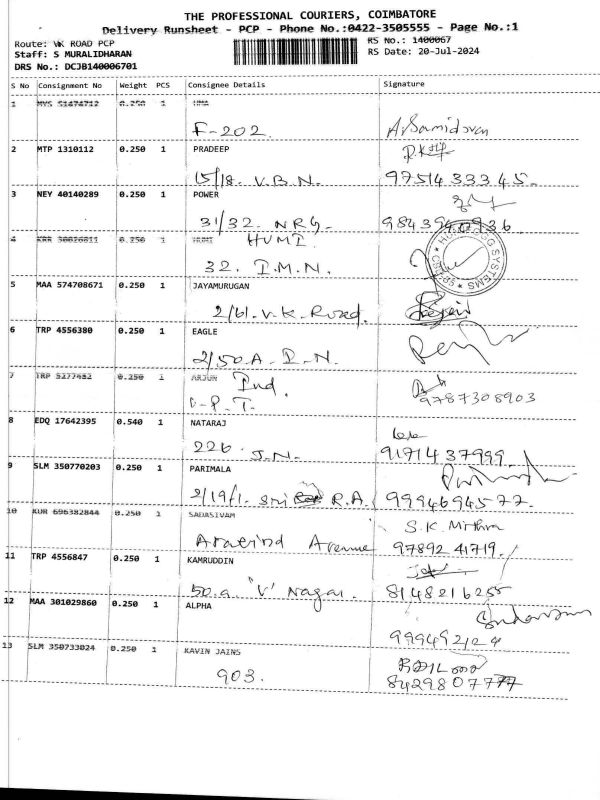 THE PROFESSIONAL COURIERS, COIMBATORE
Delivery Runsheet - PCP - Phone No.:0422-3505555 - Page No.:1
Route: VK ROAD PCP
RS No.: 1400067
Staff: S MURALIDHARAN
RS Date: 20-Jul-2024
DRS No.: DCJB140006701
S No Consignment No Weight PCS Consignee Details Signature
1 MYS 51474712 0.250 1 UMA
F-202.
2 MTP 1310112 0.250 1 PRADEEP
15/18. V.B.N. 9751433345.
3 NEY 40140289 0.250 1 POWER
31/32. NRG. 9843940936
4 KRR 30026811 0.250 1 HUMI
HUMI
32. I.M.N.
5 MAA 574708671 0.250 1 JAYAMURUGAN
2/61. V.K. Road.
6 TRP 4556380 0.250 1 EAGLE
2/50.A. I.N.
7 TRP 5277452 0.250 1 ARJUN Ind.
V.P.T. 9787308903
8 EDQ 17642395 0.540 1 NATARAJ
226. J.N. 9171437999.
9 SLM 350770203 0.250 1 PARIMALA
2/19/1. Sri R.A. 9994694577.
10 KUR 696382844 0.250 1 SADASIVAM S.K. Mithra
Aravind Avenue 97892 41719.
11 TRP 4556847 0.250 1 KAMRUDDIN
50.a. 'V' Nagar. 8148216255
12 MAA 301029860 0.250 1 ALPHA
999492124
13 SLM 350733024 0.250 1 KAVIN JAINS
903. 8429807777